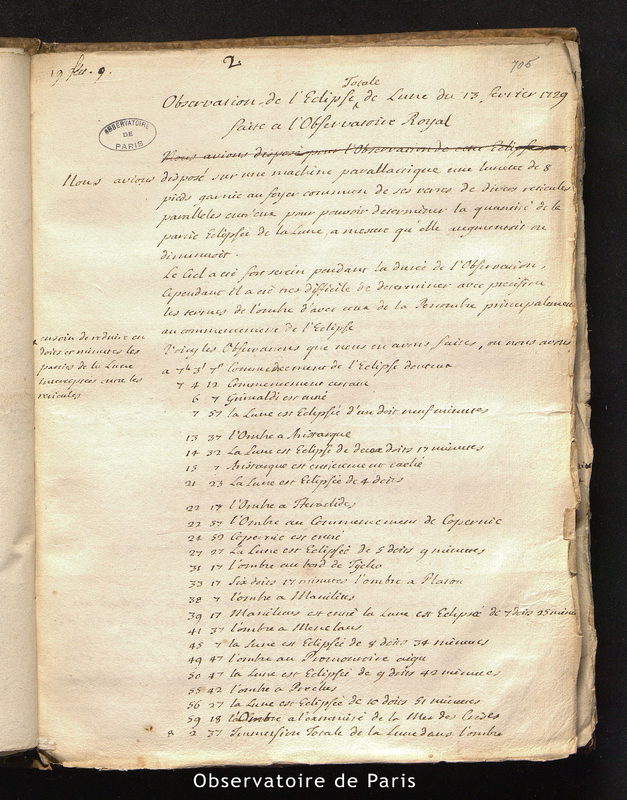 19 fév. 9.
2
706
Totale
Observation de l'Eclipse de Lune du 13 fevrier 1729
faite a l'Observatoire Royal
OBSERVATOIRE
DE
PARIS
Nous avions disposé pour l'Observation de cette Eclipse
Nous avions disposé sur une machine parallactique une lunette de 8
pieds garnie au foyer commun de ses verres de divers reticules
paralleles entr'eux pour pouvoir determiner la quantité de la
partie Eclipsée de la Lune, a mesure qu'elle augmentoit ou
diminuoit.
Le Ciel a été fort serein pendant la durée de l'Observation,
Cependant il a été tres difficile de determiner avec precision
les termes de l'ombre d'avec ceux de la Penombre principalement
au commencement de l'Eclipse
Voicy les Observations que nous en avons faites, ou nous avons
eu soin de reduire en
doits et minutes les
parties de la Lune
interceptées entre les
reticules
a 7h 3' 7" Commencement de l'Eclipse douteux
7 4 12 Commencement certain
6 7 Grimaldi est entré
7 57 la Lune est Eclipsée d'un doit neuf minutes
13 37 l'Ombre a Aristarque
14 32 La Lune est Eclipsé de deux doits 17 minutes
15 7 Aristarque est entierement caché
21 23 La Lune est Eclipsée de 4 doits
22 17 l'Ombre a Heraclides
22 57 l'Ombre au Commencement de Copernic
24 52 Copernic est entré
27 27 La Lune est Eclipsée de 5 doits 9 minutes
31 17 l'ombre au bord de Tycho
33 17 Six doits 17 minutes l'ombre a Platon
38 7 l'ombre a Manilius
39 17 Manilius est entré la Lune est Eclipsée de 7 doits 25 minutes
41 37 l'ombre a Menelaus
45 7 la Lune est Eclipsée de 8 doits 34 minutes
49 47 l'ombre au Promontoire aigu
50 47 la Lune est Eclipsée de 9 doits 42 minutes
55 42 l'ombre a Proclus
56 27 la Lune est Eclipsée de 10 doits 51 minutes
59 18 l'Ombre a l'extremité de la Mer des Crises
8 2 37 Immersion Totale de la Lune dans l'ombre
Observatoire de Paris